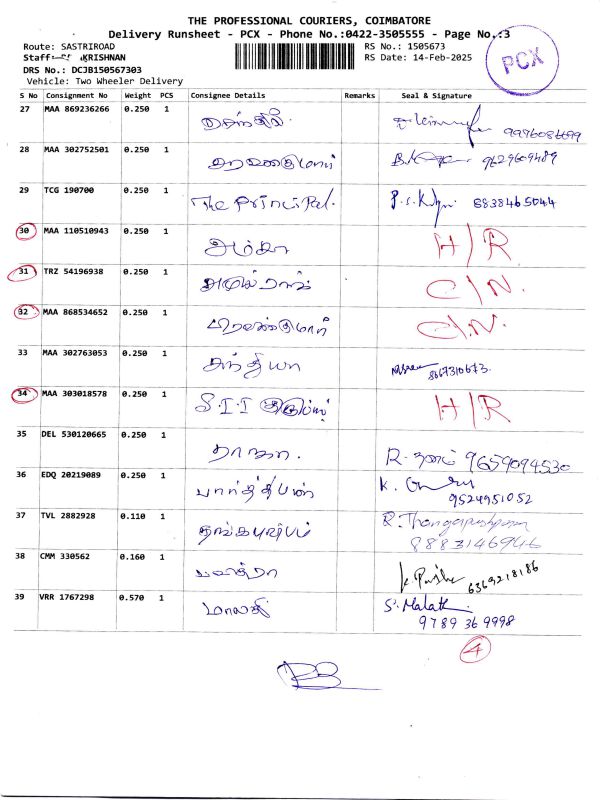 THE PROFESSIONAL COURIERS, COIMBATORE
Delivery Runsheet - PCX - Phone No.:0422-3505555 - Page No.:3
Route: SASTRIROAD
RS No.: 1505673
Staff: KRISHNAN
RS Date: 14-Feb-2025
PCX
DRS No.: DCJB150567303
Vehicle: Two Wheeler Delivery
S No Consignment No Weight PCS Consignee Details Remarks Seal & Signature
27 MAA 869236266 0.250 1 செந்தில்
28 MAA 302752501 0.250 1 சரவணகுமார் 9629609489
29 TCG 190700 0.250 1 The Principal. 8838465044
30 MAA 110510943 0.250 1 H/R
31 TRZ 54196938 0.250 1 C/N.
32 MAA 868534652 0.250 1 C/N.
33 MAA 302763053 0.250 1 சந்தியா 8667310673
34 MAA 303018578 0.250 1 S.I.I H/R
35 DEL 530120665 0.250 1 R. 9659094530
36 EDQ 20219089 0.250 1 பார்த்திபன் K. 9524951052
37 TVL 2882928 0.110 1 தங்கபுஷ்பம் R. Thangapushpam
8883146946
38 CMM 330562 0.160 1 பவித்ரா 6369218186
39 VRR 1767298 0.570 1 மாலதி S. Malathi
9789369998
4